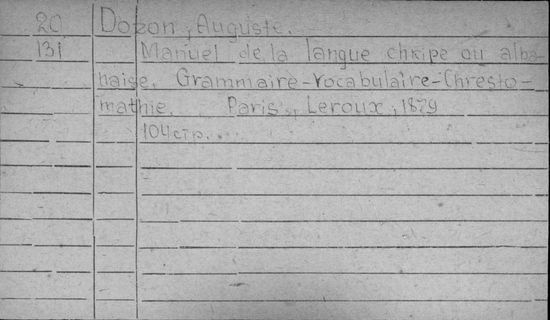 20 Dozon, Auguste.
131 Manuel de la langue chkipe ou alba-
naise. Grammaire-Vocabulaire-Chresto-
mathie. Paris, Leroux, 1879
104 стр.